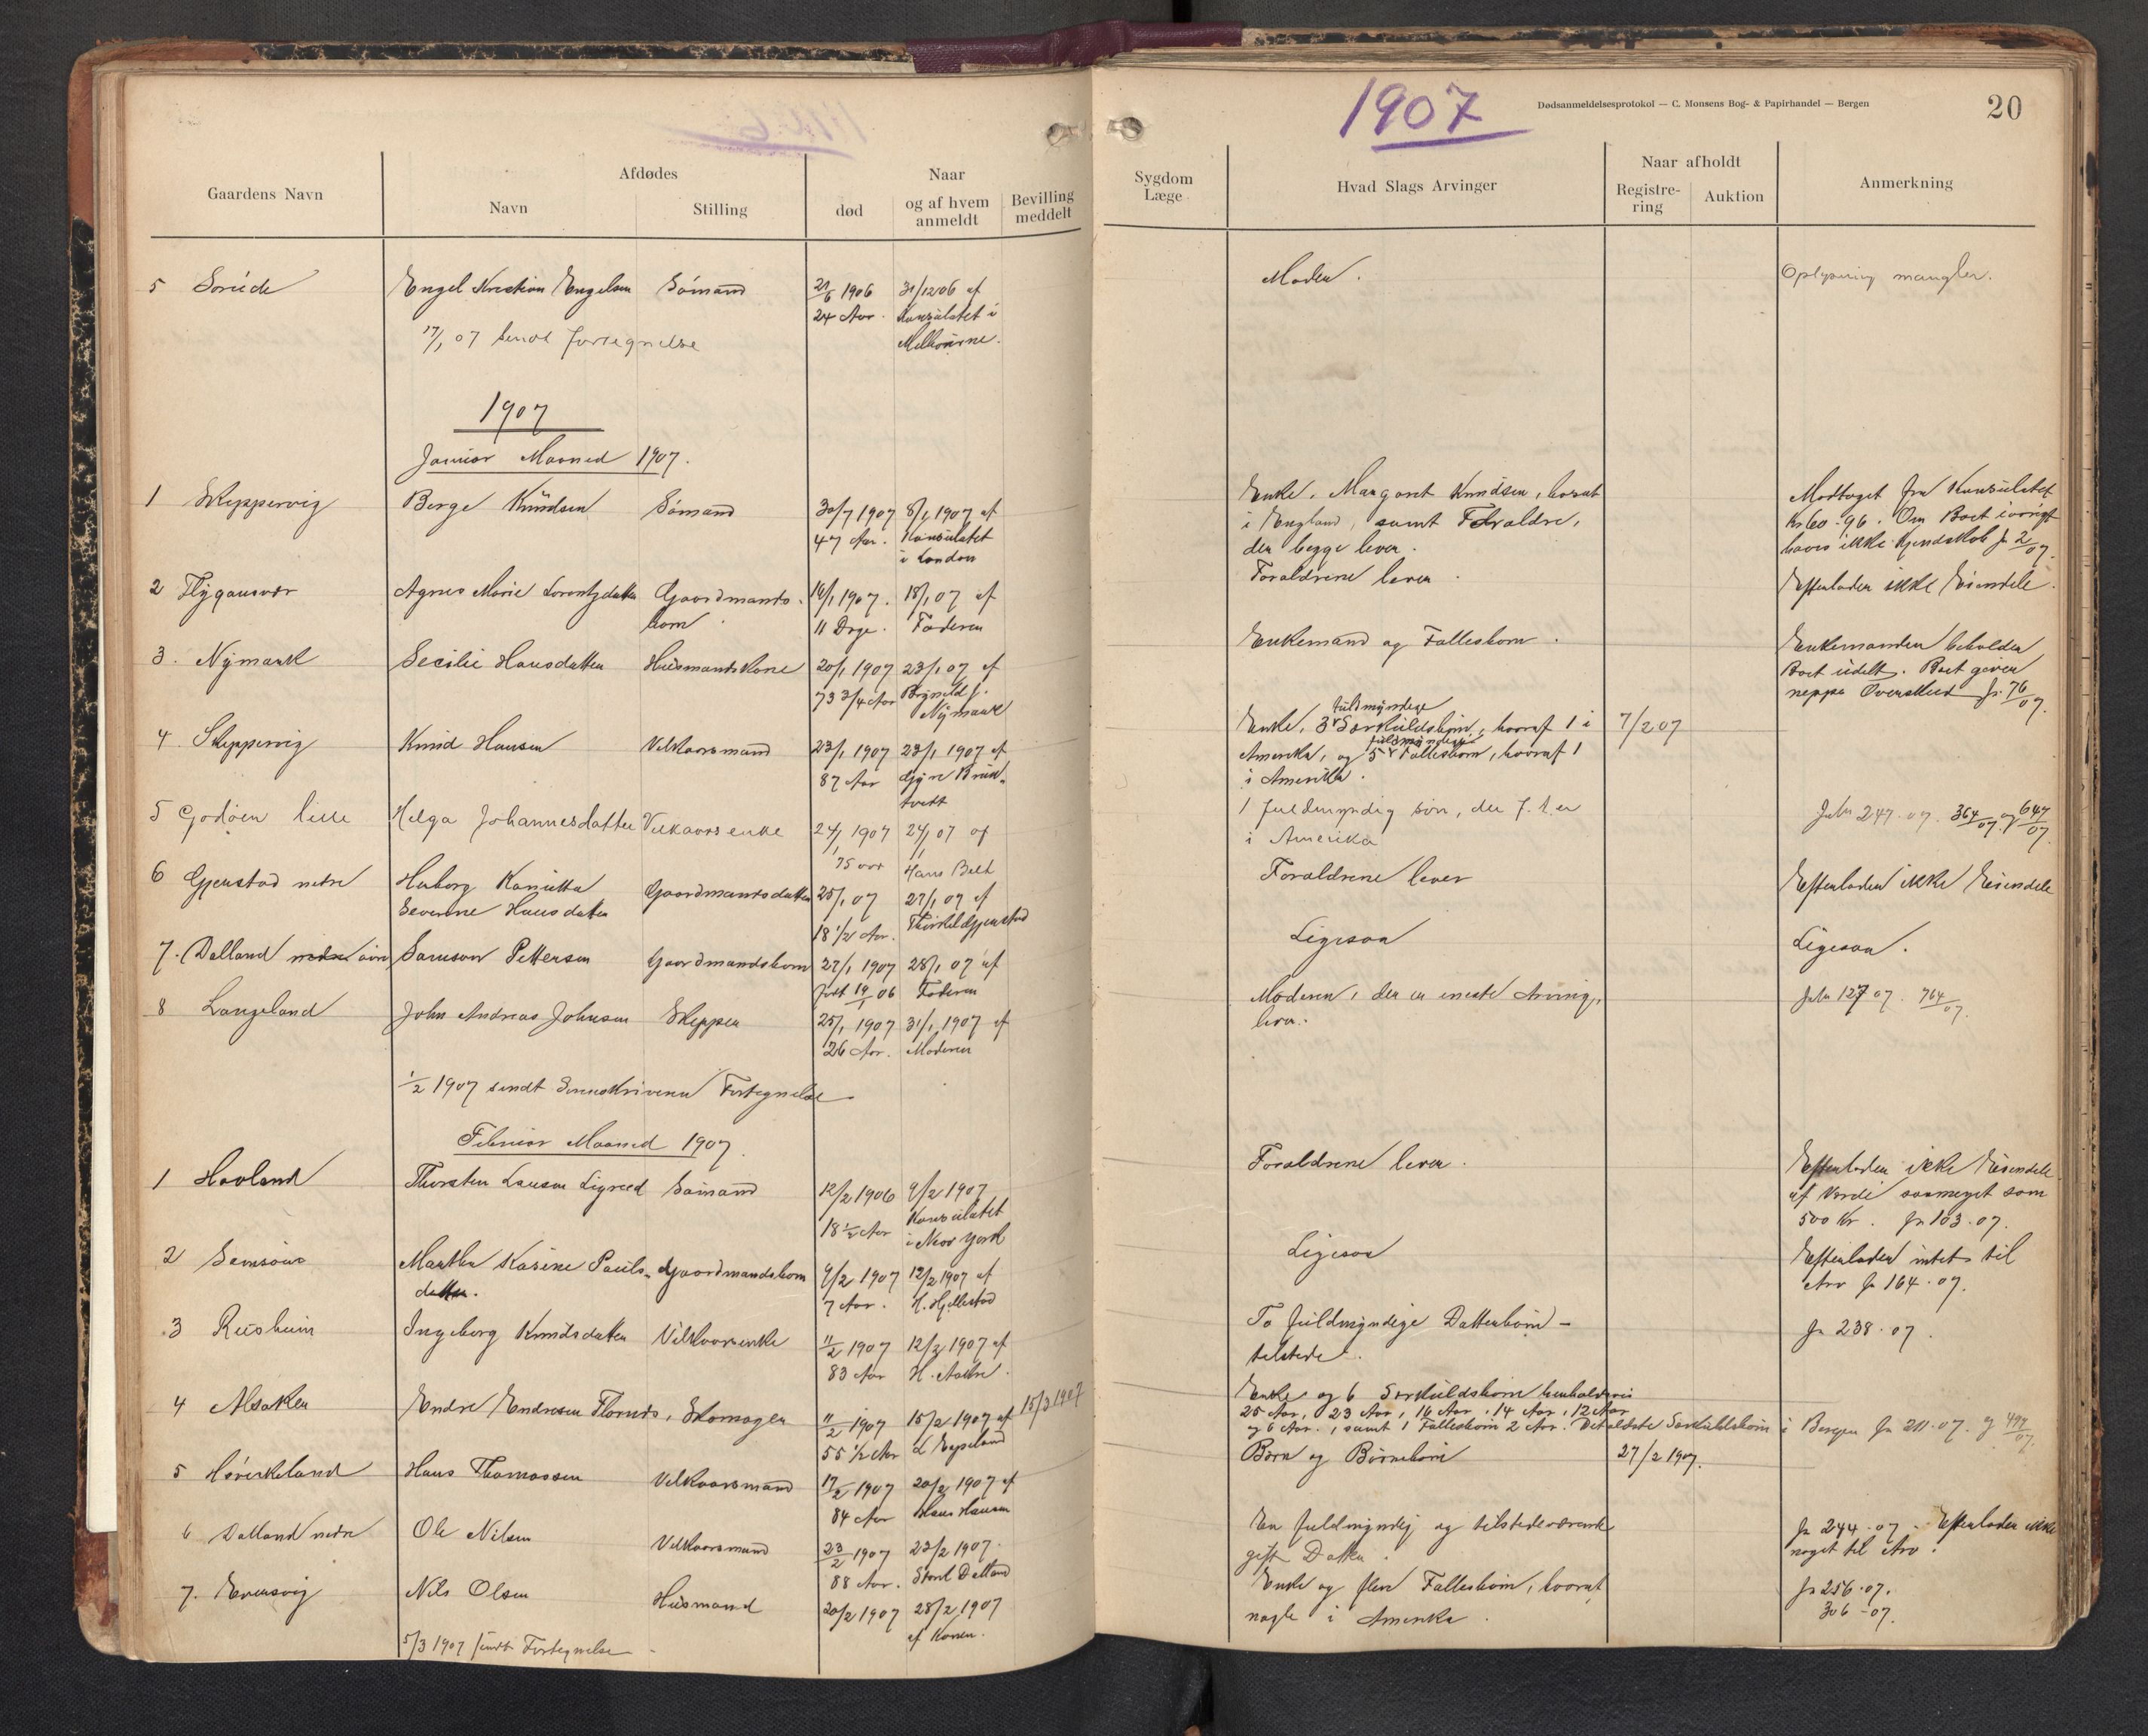 1907
Dødsanmeldelsesprotokol — C. Monsens Bog- & Papirhandel — Bergen
20
Gaardens Navn
Afdødes
Navn
Stilling
Naar
død
og af hvem anmeldt
Bevilling meddelt
Sygdom
Læge
Hvad Slags Arvinger
Naar afholdt
Registre-
ring
Auktion
Anmerkning
5 Engel Kristian Engelsen Sömand 21/6 1906 31/12 06 af Moder. Oplysning mangler.
24 Aar. Konsulatet i
17/1 07 sendt fortegnelse Melbourne.
1907
Januar Maaned 1907.
1 Skeppervig Berge Knudsen Sömand 30/7 1907 8/1 1907 af Enke, Margaret Knudsen, bosat Modtaget fra Konsulatet
47 Aar. Konsulatet i England, samt Forældre, Kr 60-96. Om Boet iövrigt
i London der begge lever. haves ikke Kjendskab Jr 2/07.
2 Flygansvær Agnes Marie Lorentzdatter Gaardmands- 16/1 1907. 18/1 07 af Forældrene lever. Efterlader ikke Eiendele.
barn 11 Dage. Faderen
3. Nymark Secilie Hansdatter Husmandskone 20/1 1907 23/1 07 af Enkemand og Fællesbørn. Enkemanden beholder
73 3/4 Aar Brynild J. Boet udelt. Boet giver
Nymark neppe Overskud Jr. 76/07.
4. Skeppervig Knud Hansen Vilkaarsmand 23/1 1907 28/1 1907 af Enke, 3 fuldmyndige Særkuldsbörn, hvoraf 1 i 7/2 07
87 Aar Amerika, og 5 fuldmyndige Fællesbörn, hvoraf 1
i Amerika.
5 Godøen lille Helga Johannesdatter Vilkaarsenke 24/1 1907 27/1 07 af 1 fuldmyndig søn, der f. t. er Jabr 247.07. 364/07 og 647/07.
75 aar Hans Belt i Amerika
6 Gjerstad nedre Severine Hansdatter Gaardmandsdatter 25/1 07 27/1 07 af Forældrene lever Efterlader ikke Eiendele
18 1/2 Aar.
7. Dalland nedre øvre Samson Pettersen Gaardmandsbarn 27/1 1907 28/1 07 af Ligesaa Ligesaa.
født 06 Faderen
8 Langeland John Andreas Johnsen Skipper 25/1 1907 31/1 1907 af Moderen, der er eneste Arving, Jabr 127 07. 764/07.
26 Aar. Moderen lever.
1/2 1907 sendt Sorenskriveren Fortegnelse
Februar Maaned 1907.
1 Havland Thorsten Larsen 12/2 1906 9/2 1907 Forældrene lever. Efterlader ikke Eiendele
Sömand 18 1/2 Aar Konsulatet af Værdi saameget som
i New York 500 Kr. Jr 103.07.
2 Martha Karine Pauls- Gaardmandsbarn 9/2 1907 12/2 1907 af Ligesaa Efterlader intet til
datter. 7 Aar. H. Hjellestad Arv Jr 164.07.
3 Ingeborg Knudsdatter Vilkaarsenke 11/2 1907 12/2 1907 af To fuldmyndige Datterbörn - Jr 238.07.
83 Aar tilstede.
4 Alsaker Endre Endresen Skomager 11/2 1907 15/2 1907 af 15/3 1907 Enke og 6 Særkuldsbörn henholdsvis
55 1/2 Aar 25 Aar, 23 Aar, 16 Aar, 14 Aar, 12 Aar
og 6 Aar., samt 1 Fællesbarn 2 Aar. Det ældste Særkuldsbarn i Bergen Jr 211.07.
5 Hans Thomassen Vilkaarsmand 17/2 1907 20/2 1907 af Börn og Börnebörn 27/2 1907.
84 Aar Hans Hansen
6 Dalland nedre Ole Nilsen Vilkaarsmand 23/2 1907 23/2 1907. En fuldmyndig og tilstedeværende Jr 244.07. Efterlader ikke
88 Aar. gift Datter. noget til Arv.
7. Nils Olsen Husmand 20/2 1907 28/2 1907 Enke og flere Fællesbörn, hvoraf Jr 256.07.
af Konen. nogle i Amerika. 306-07.
5/3 1907 sendt Fortegnelse